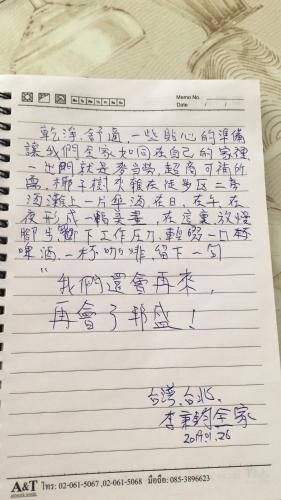 Memo No.
Date / /
乾淨.舒適.一些貼心的準備
讓我們全家如同在自己的家裡
一出門就是麥当勞,超商可街所
需,椰子樹大
酒灘上一片傘海在日,在午,在
夜形成一幅美畫,在這裏放慢
腳步,斷下工作压力,輕啜一口
啤酒.一杯咖啡,留下一句
"我們還會再來,
再會了邦盛!
台灣.台北.
李秉鈞全家
2019.01.26
A&T โทร: 02-061-5067 ,02-061-5068 มือถือ: 085-3896623